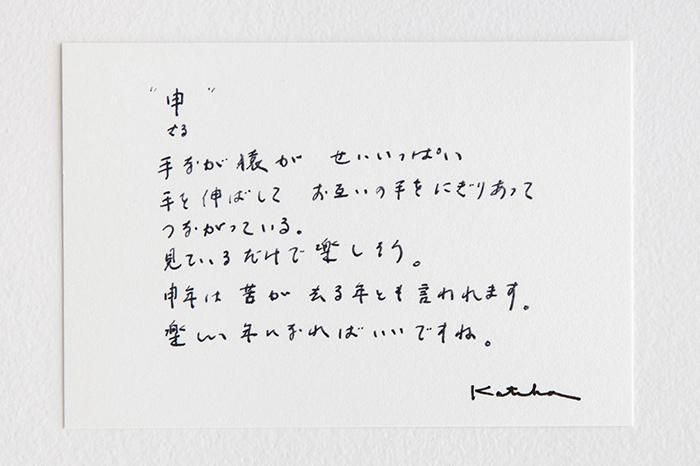 “申”
さる
手なが猿が せいいっぱい
手を伸ばして お互いの手をにぎりあって
つながっている。
見ているだけで楽しそう。
申年は 苦が 去る年とも言われます。
楽しい年になればいいですね。